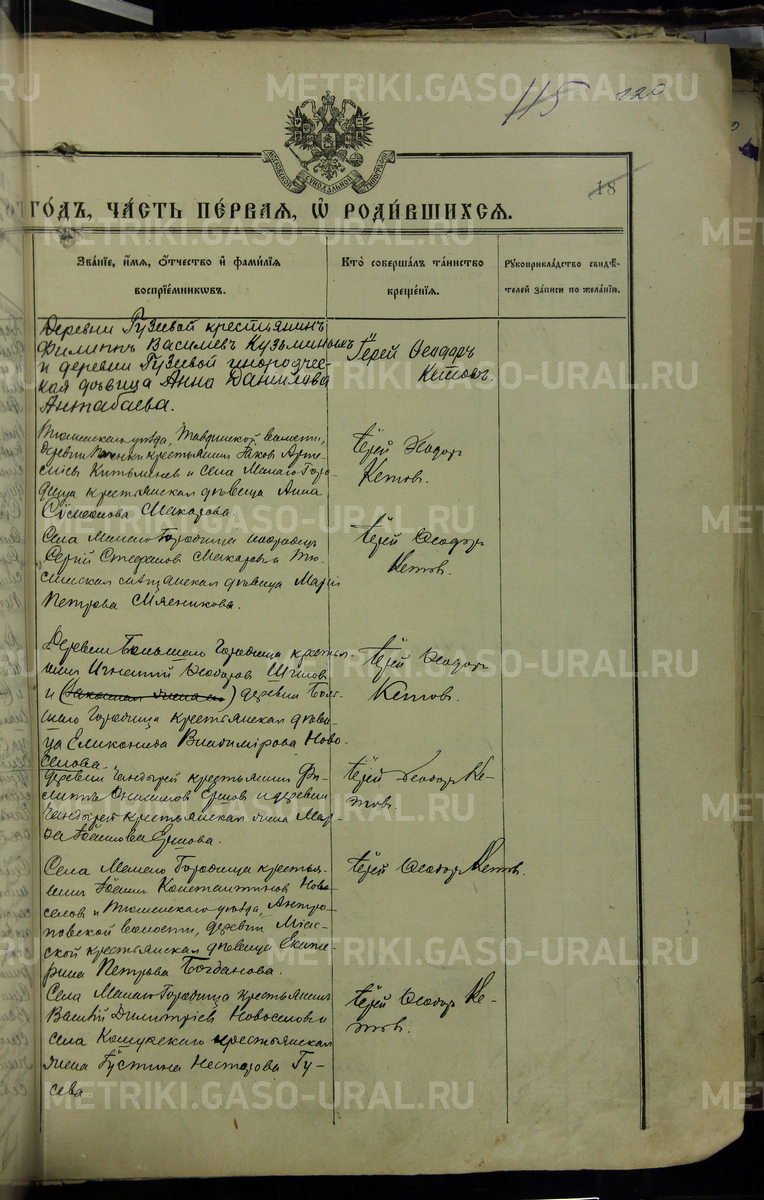 METRIKI.GASO-URAL.RU
115 220
МОСКОВСКОЙ СѴНОДАЛЬНОЙ ТИПОГРАФІИ
18
ГОДЪ, ЧАСТЬ ПЕРВАЯ, Ѡ РОДИВШИХСЯ.
Званіе, имя, отчество и фамилія воспріемниковъ.
Кто совершалъ таинство крещенія.
Рукоприкладство свидѣтелей записи по желанію.
Деревни Гузеевой крестьянинъ
Филиппъ Василіевъ Кузьминыхъ
и деревни Гузеевой инородчес-
кая дѣвица Анна Данилова
Антабаева.
Іерей Ѳеодоръ
Кетовъ.
Тюменскаго уѣзда, Тавдинской волости,
деревни крестьянинъ Іаковъ Арте-
міевъ и села Малаго Горо-
дища крестьянская дѣвица Анна
Сѵмеонова Макарова.
Іерей Ѳеодоръ
Кетовъ.
Села Малаго Городища инородецъ
Сергій Стефановъ Макаровъ и Тю-
менская мѣщанская дѣвица Марія
Петрова Мясникова.
Іерей Ѳеодоръ
Кетовъ.
Деревни Большого Городища кресть-
янинъ Игнатій Ѳеодоровъ Шиловъ
и деревни Боль-
шого Городища крестьянская дѣви-
ца Еликонида Владимірова Ново-
селова.
Іерей Ѳеодоръ
Кетовъ.
Деревни Чандырей крестьянинъ Фи-
липпъ Онисимовъ Ершовъ и деревни
Чандырей крестьянская жена Мар-
ѳа Іоаннова Ершова.
Іерей Ѳеодоръ Ке-
товъ.
Села Малаго Городища крестья-
нинъ Іоаннъ Константиновъ Ново-
селовъ и Тюменскаго уѣзда, Антро-
повской волости, деревни Міас-
ской крестьянская дѣвица Екате-
рина Петрова Богданова.
Іерей Ѳеодоръ Кетовъ.
Села Малаго Городища крестьянинъ
Василій Димитріевъ Новоселовъ и
села Кошукскаго крестьянская
жена Іустина Несторова Гу-
сева.
Іерей Ѳеодоръ Ке-
товъ.